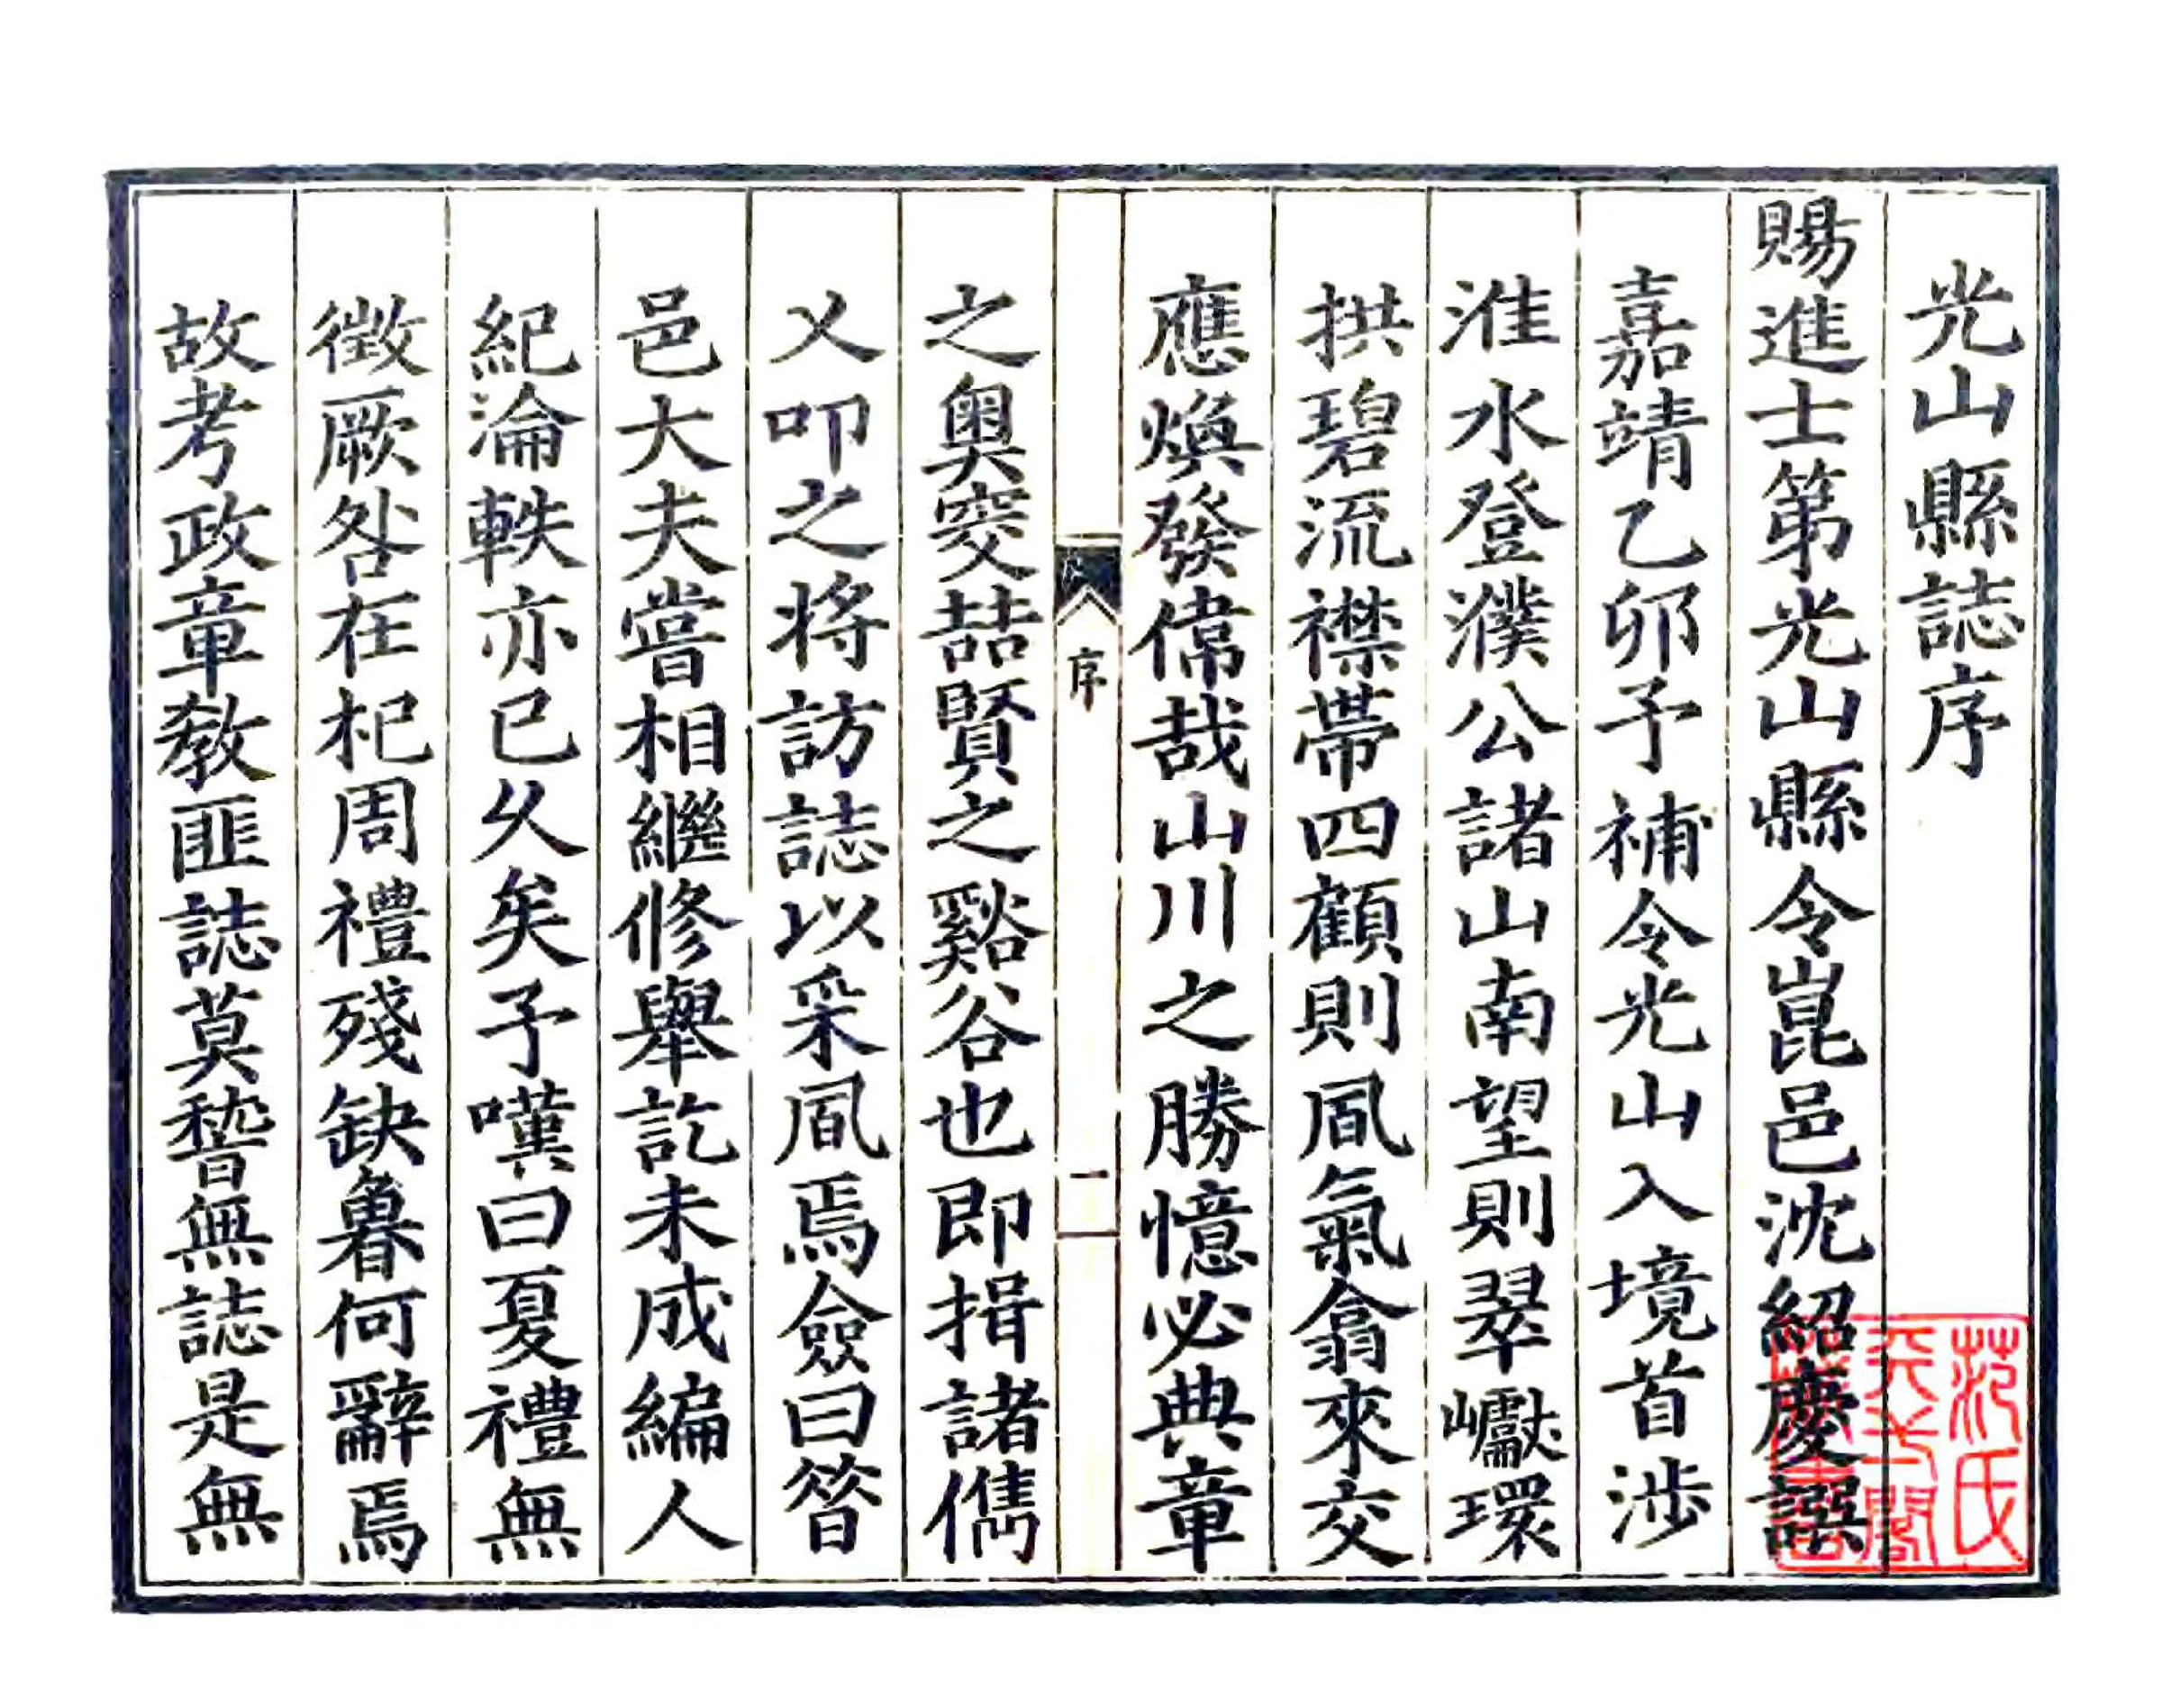 光山縣誌序
賜進士第光山縣令崑邑沈紹慶譔
嘉靖乙卯予補令光山入境首渉
淮水登濮公諸山南望則翠巘環
拱碧流襟帶四顧則凬氣翕來交
應煥發偉哉山川之勝憶必典章
序
一
之奥窔喆賢之谿谷也即揖諸儁
乂叩之将訪誌以采凬焉僉曰昝
邑大夫嘗相繼修舉訖未成編人
紀淪軼亦已乆矣予嘆曰夏禮無
徵厥咎在杞周禮殘缺何辭焉
故考政章教匪誌莫稽無誌是無
范氏
天一閣
藏書